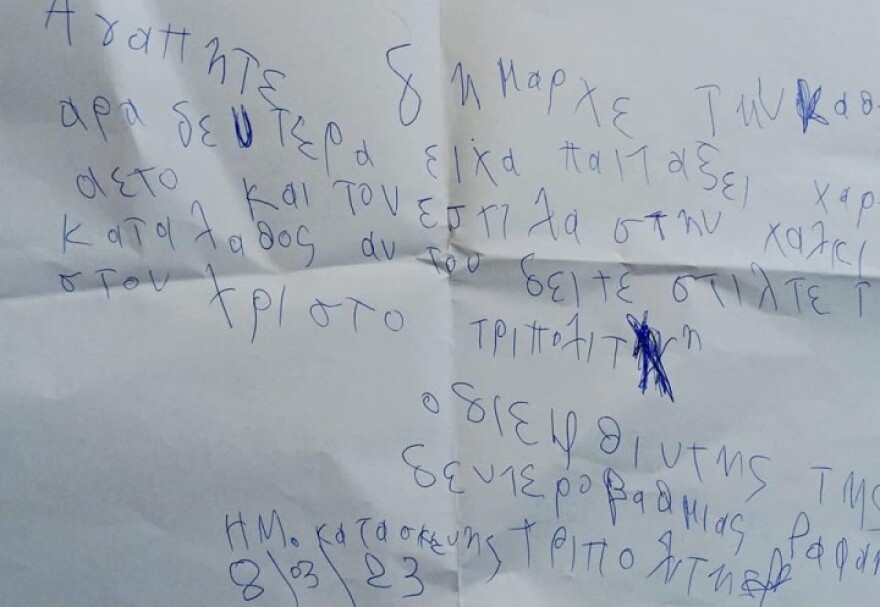 Αγαπητε δημαρχε την καθ
αρα δευτερα ειχα παιταξει χαρ
αετο και τον εστιλα στην χαλκι
καταλαθος αν τον δειτε στιλτε τ
στον χριστο τριπολιτη
ο διευθιντης της
δευτεροβαθμιας ραφαη
ΗΜ. κατασκευης τριπολιτη
8/03/23